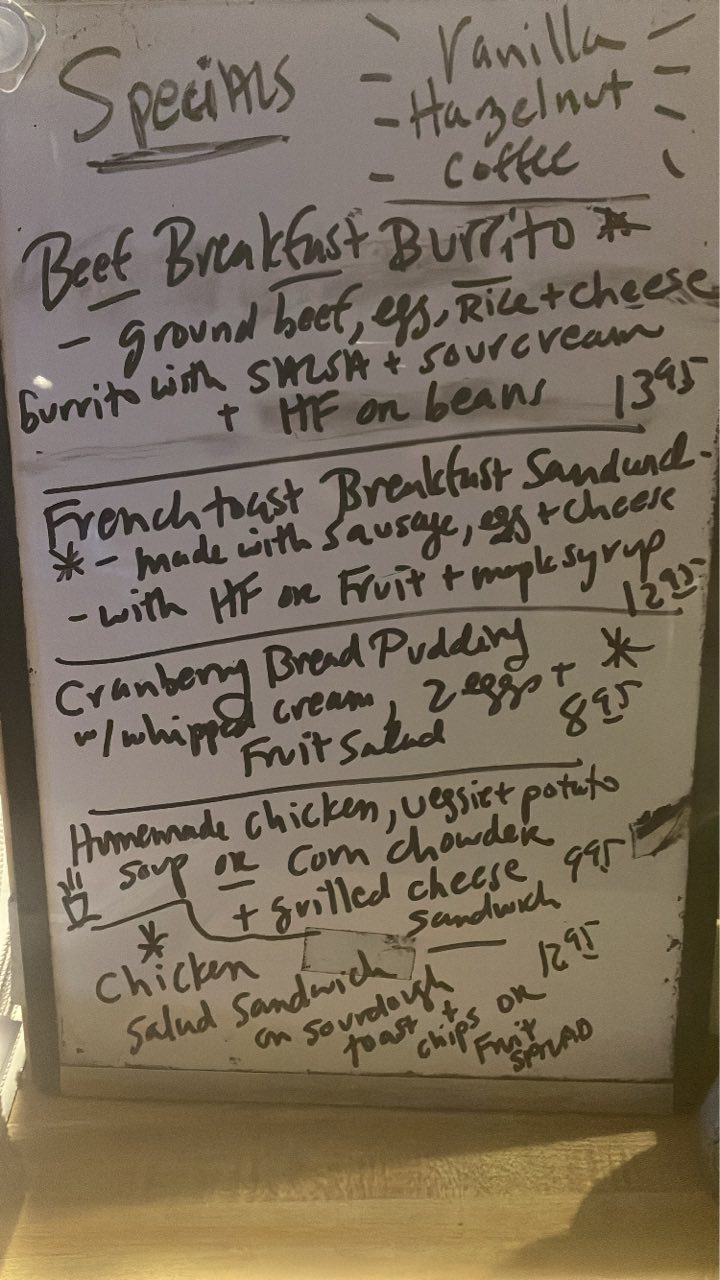 Specials
Vanilla
Hazelnut
Coffee
Beef Breakfast Burrito *
- ground beef, egg, Rice + cheese
burrito with SALSA + sourcream
+ HF or beans 13 95
French toast Breakfast Sandwich
* - made with sausage, egg + cheese
- with HF or Fruit + maple syrup
12 95
Cranberry Bread Pudding
w/ whipped cream, 2 eggs + *
Fruit Salad 8 95
Homemade chicken, veggie + potato
soup or Corn chowder
+ grilled cheese 9 95
sandwich
*
Chicken 12 95
Salad Sandwich
on sourdough
toast +
chips or
Fruit
SALAD